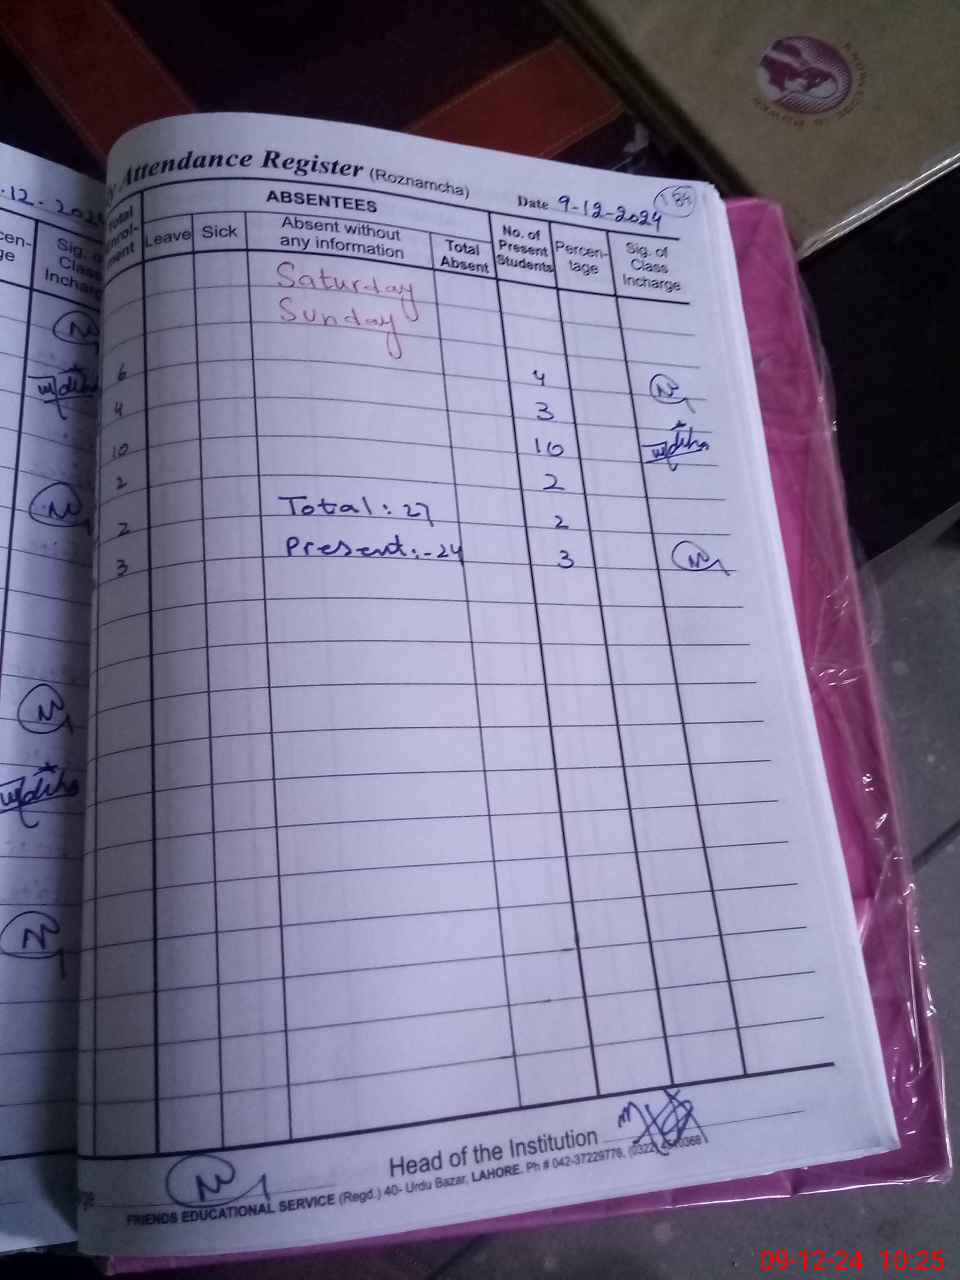 Attendance Register (Roznamcha)
Date 9-12-2024
184
ABSENTEES
Total Enrol-ment
Leave
Sick
Absent without any information
Total Absent
No. of Present Students
Percen-tage
Sig. of Class Incharge
Saturday
Sunday
6 4
4 3
10 10
2 2
Total: 27
2 2
Present:-24
3 3
Head of the Institution
FRIENDS EDUCATIONAL SERVICE (Regd.) 40- Urdu Bazar, LAHORE. Ph # 042-37229776, (0322)
.12.2024
Sig. of Class Incharge
09-12-24 10:25